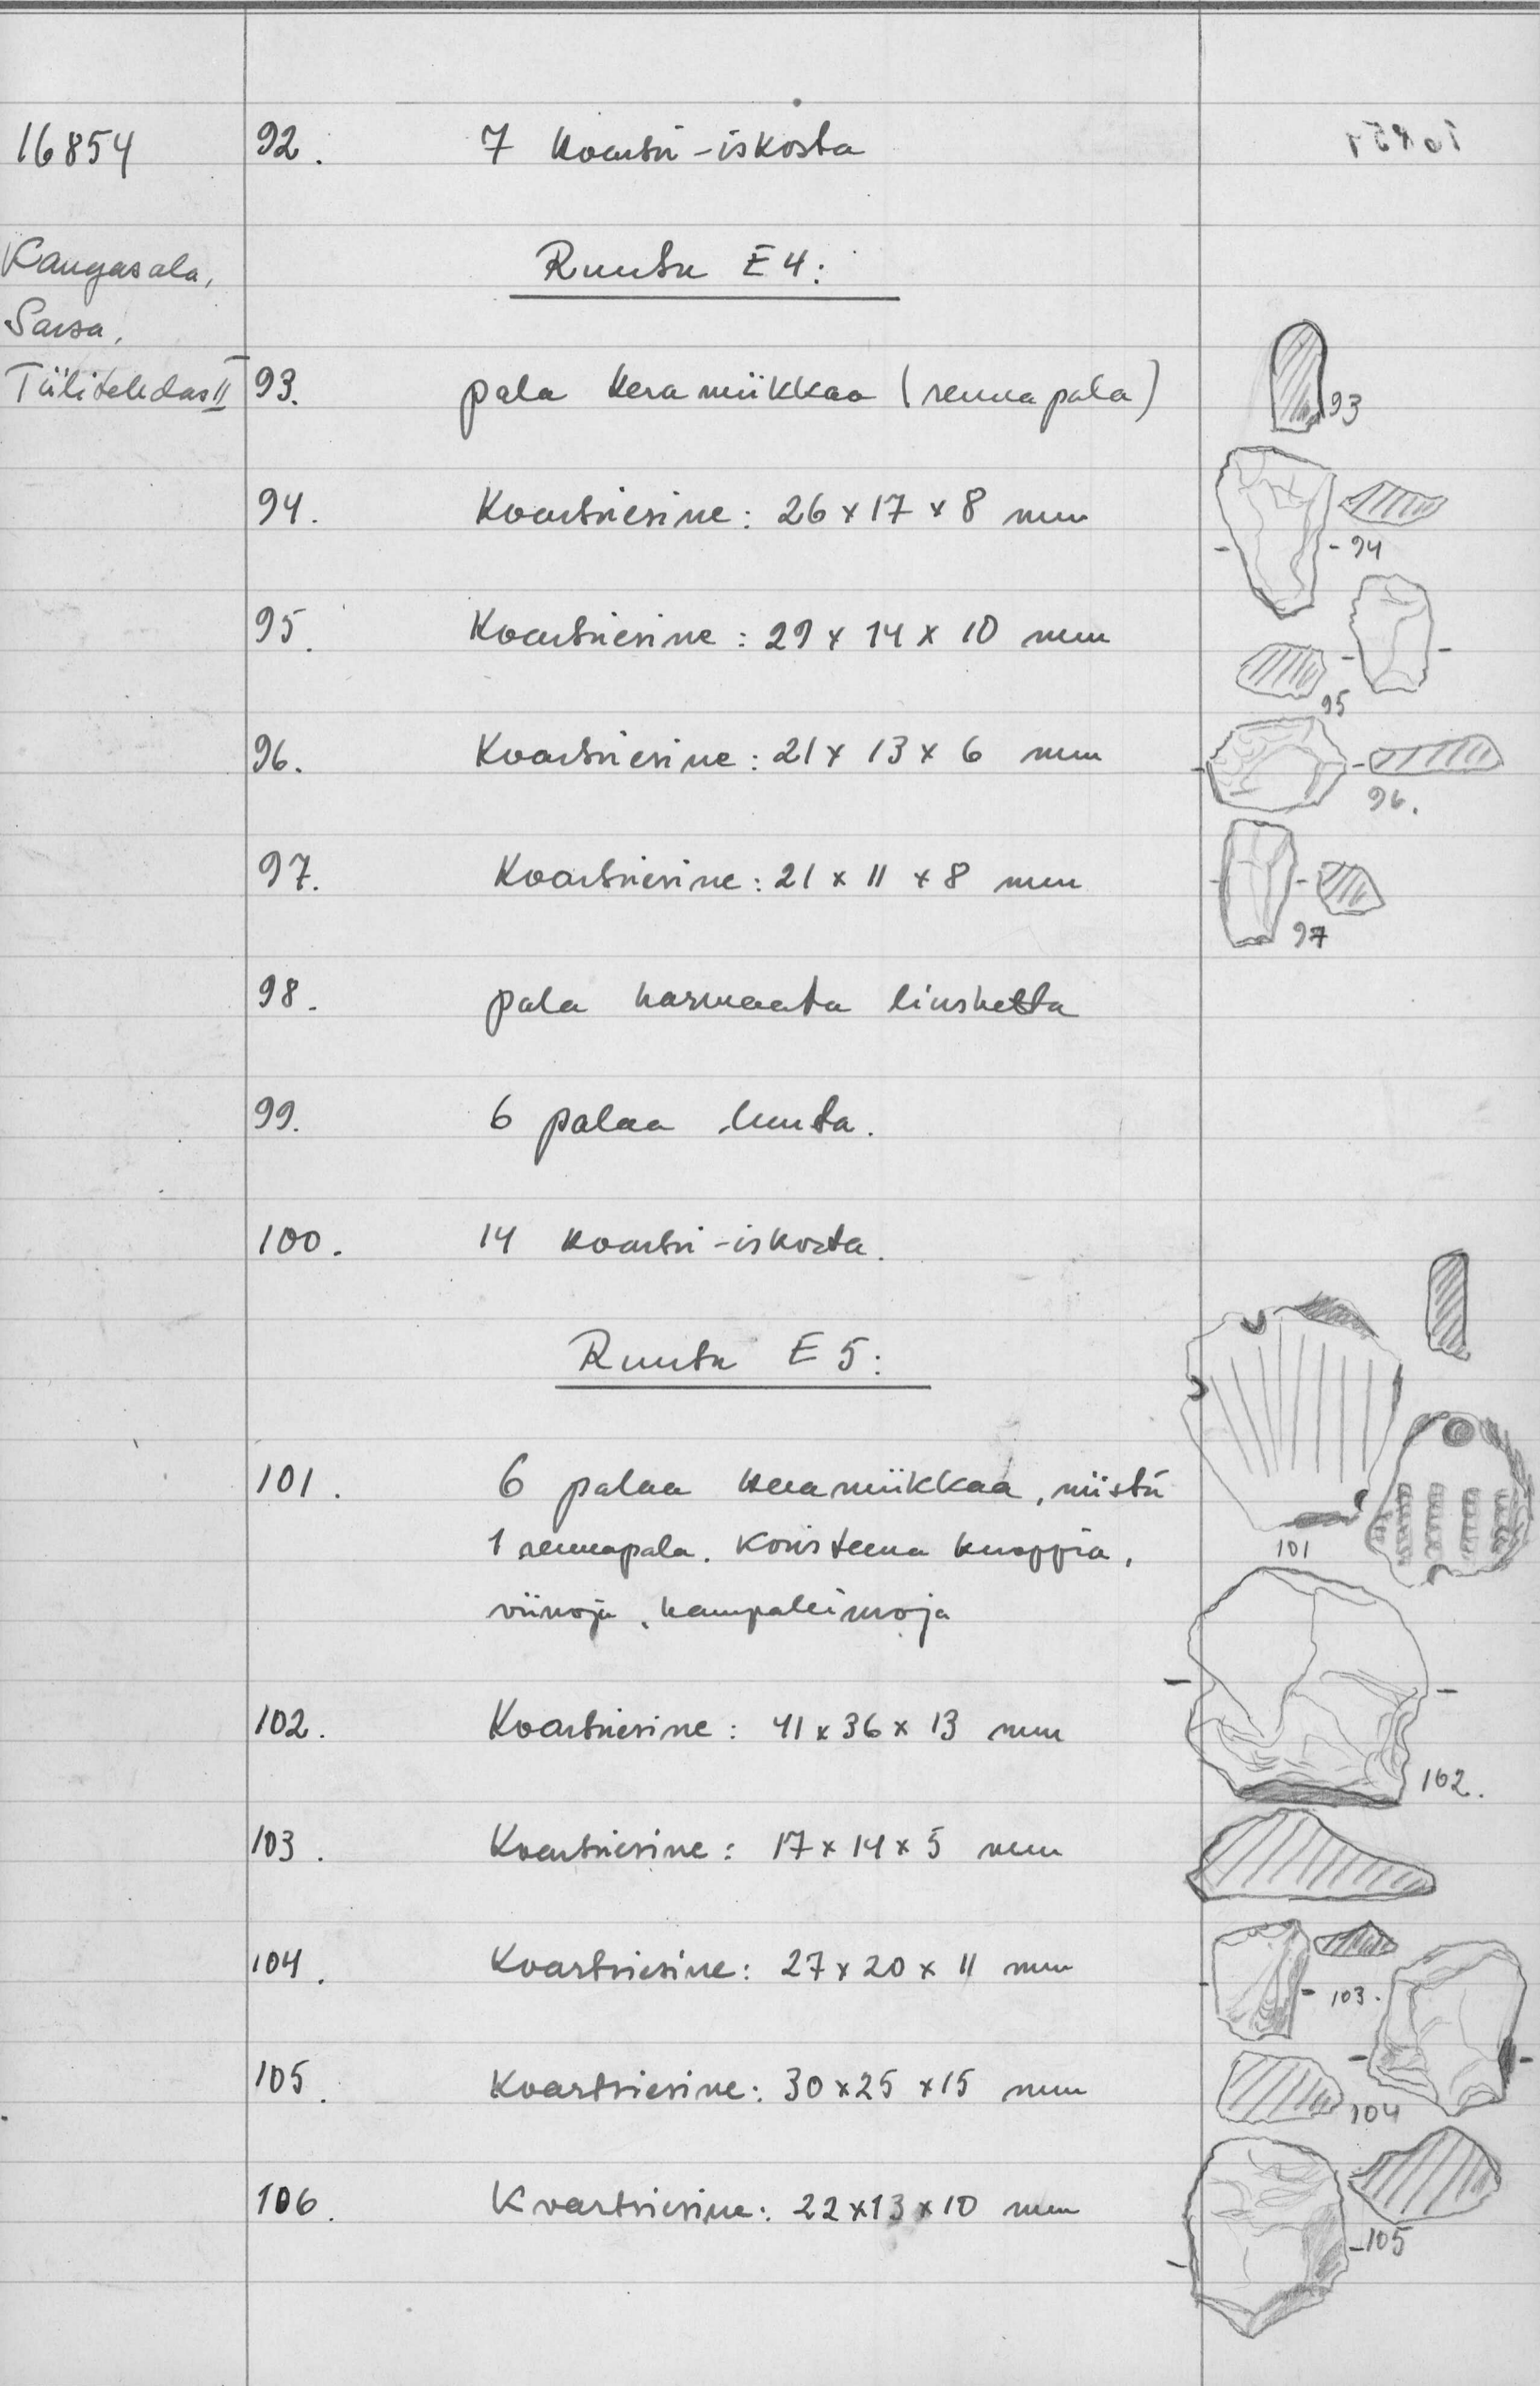 16854 92. 7 kvartsi-iskosta
Kangasala,
Sarsa,
Tiilitehdas II
Ruutu E4:
93. pala keramiikkaa (reunapala)
94. Kvartsiesine: 26 x 17 x 8 mm
95. Kvartsiesine: 29 x 14 x 10 mm
96. Kvartsiesine: 21 x 13 x 6 mm
97. Kvartsiesine: 21 x 11 x 8 mm
98. pala harmaata liusketta
99. 6 palaa luuta.
100. 14 kvartsi-iskosta.
Ruutu E5:
101. 6 palaa keramiikkaa, niistä
1 reunapala. Koristeena kuoppia,
viivoja, kampaleimoja
102. Kvartsiesine: 41 x 36 x 13 mm
103. Kvartsiesine: 17 x 14 x 5 mm
104. Kvartsiesine: 27 x 20 x 11 mm
105. Kvartsiesine: 30 x 25 x 15 mm
106. Kvartsiesine: 22 x 13 x 10 mm
93
94
95
96.
97
101
102.
103.
104
105